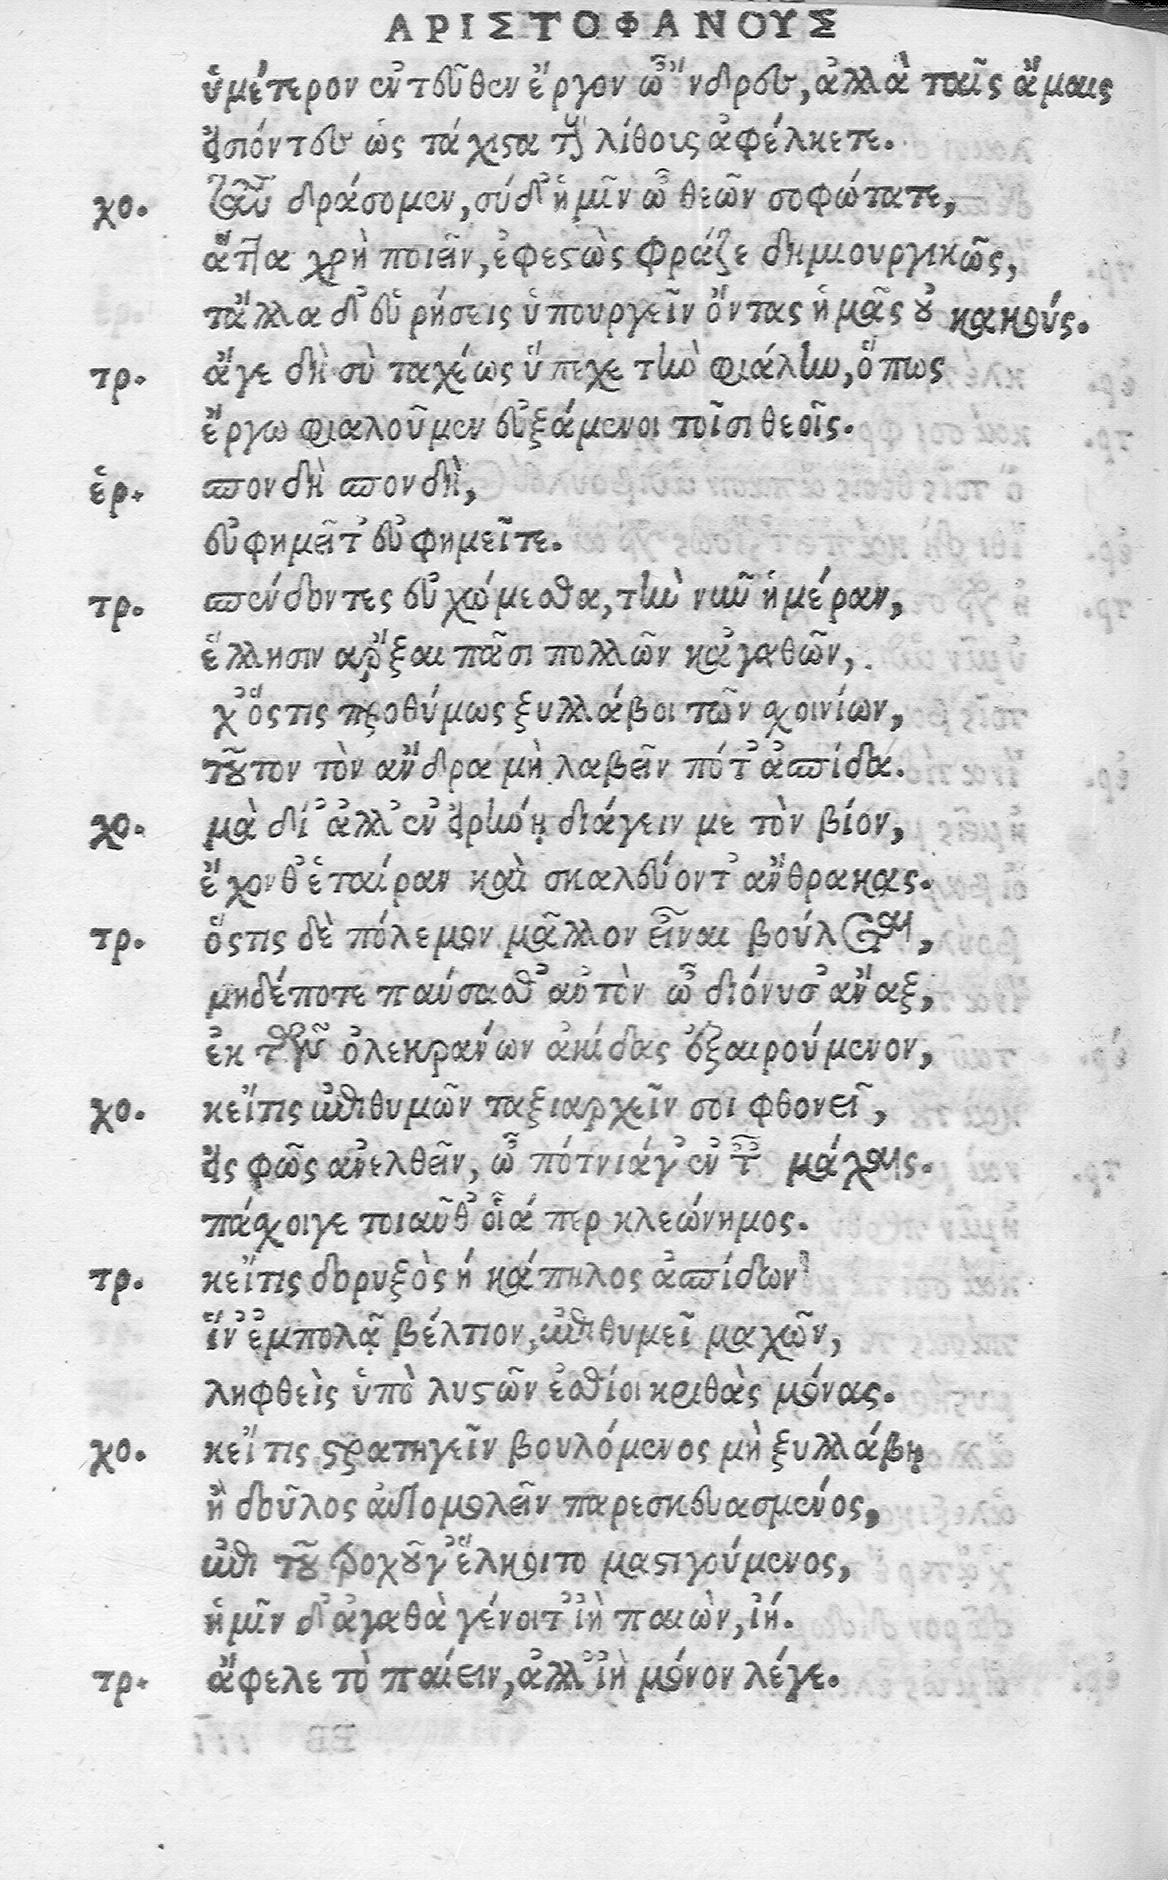 ΑΡΙΣΤΟΦΑΝΟΥΣ
ὑμέτερον ἐντεῦθεν ἔργον ὦ ἄνδρες, ἀλλὰ ταῖς ἄμαις
εἰσιόντες ὡς τάχιστα τοὺς λίθους ἀφέλκετε.
χο. ταῦτα δράσομεν, σύ δ' ἡμῖν ὦ θεῶν σοφώτατε,
ἅττα χρὴ ποιεῖν, ἐφεστὼς φράζε δημιουργικῶς,
τἄλλα δ' εὑρήσεις ὑπουργεῖν ὄντας ἡμᾶς οὐ κακούς.
τρ. ἄγε δὴ σὺ ταχέως ὕπεχε τὴν φιάλην, ὅπως
ἔργῳ φιαλοῦμεν εὐξάμενοι τοῖσι θεοῖς.
ἑρ. σπονδὴ σπονδὴ,
εὐφημεῖτ' εὐφημεῖτε.
τρ. σπένδοντες εὐχώμεσθα, τὴν νῦν ἡμέραν,
ἕλλησιν ἄρξαι πᾶσι πολλῶν κἀγαθῶν,
χ' ὅστις προθύμως ξυλλάβοι τῶν σχοινίων,
τοῦτον τὸν ἄνδρα μὴ λαβεῖν πότ' ἀσπίδα.
χο. μὰ δί' ἀλλ' ἐν εἰρήνῃ διάγειν μὲ τὸν βίον,
ἔχονθ' ἑταίραν καὶ σκαλεύοντ' ἄνθρακας.
τρ. ὅστις δὲ πόλεμον μᾶλλον εἶναι βούλεται,
μηδέποτε παύσασθ' αὐτὸν ὦ διόνυσ' ἄναξ,
ἐκ τῶν ὀλεκράνων ἀκίδας ἐξαιρούμενον,
χο. κεἴτις ἐπιθυμῶν ταξιαρχεῖν σοι φθονεῖ,
εἰς φῶς ἀνελθεῖν, ὦ πότνιάγ' ἐν ταῖς μάχαις.
πάσχοιγε τοιαῦθ' οἷά περ κλεώνημος.
τρ. κεἴτις δορυξὸς ἢ κάπηλος ἀσπίδων
ἵν' ἐμπολᾷ βέλτιον, ἐπιθυμεῖ μαχῶν,
ληφθεὶς ὑπὸ λῃστῶν ἐσθίοι κριθὰς μόνας.
χο. κεἴτις στρατηγεῖν βουλόμενος μὴ ξυλλάβῃ
ἢ δοῦλος αὐτομολεῖν παρεσκευασμένος,
ἐπὶ τοῦ τροχοῦγ' ἕλκοιτο μαστιγούμενος,
ἡμῖν δ' ἀγαθὰ γένοιτ' ἰὴ παιὼν, ἰή.
τρ. ἄφελε τὸ παίειν, ἀλλ' ἰὴ μόνον λέγε.